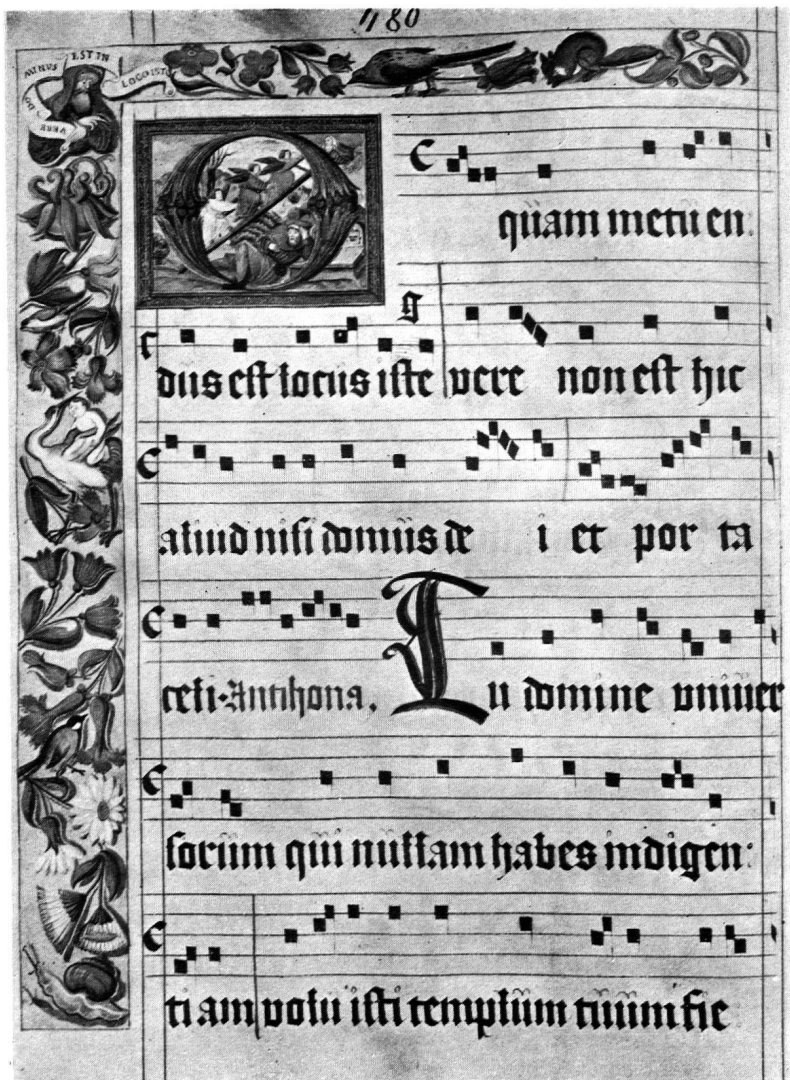 480
DOMINUS EST IN LOCO ISTO VERE
O quam metuen:
dus est locus iste vere non est hic
aliud nisi domus de i et por ta
celi. Antiphona. Tu domine univer
sorum qui nullam habes indigen:
ti am voluisti templum tuum fie